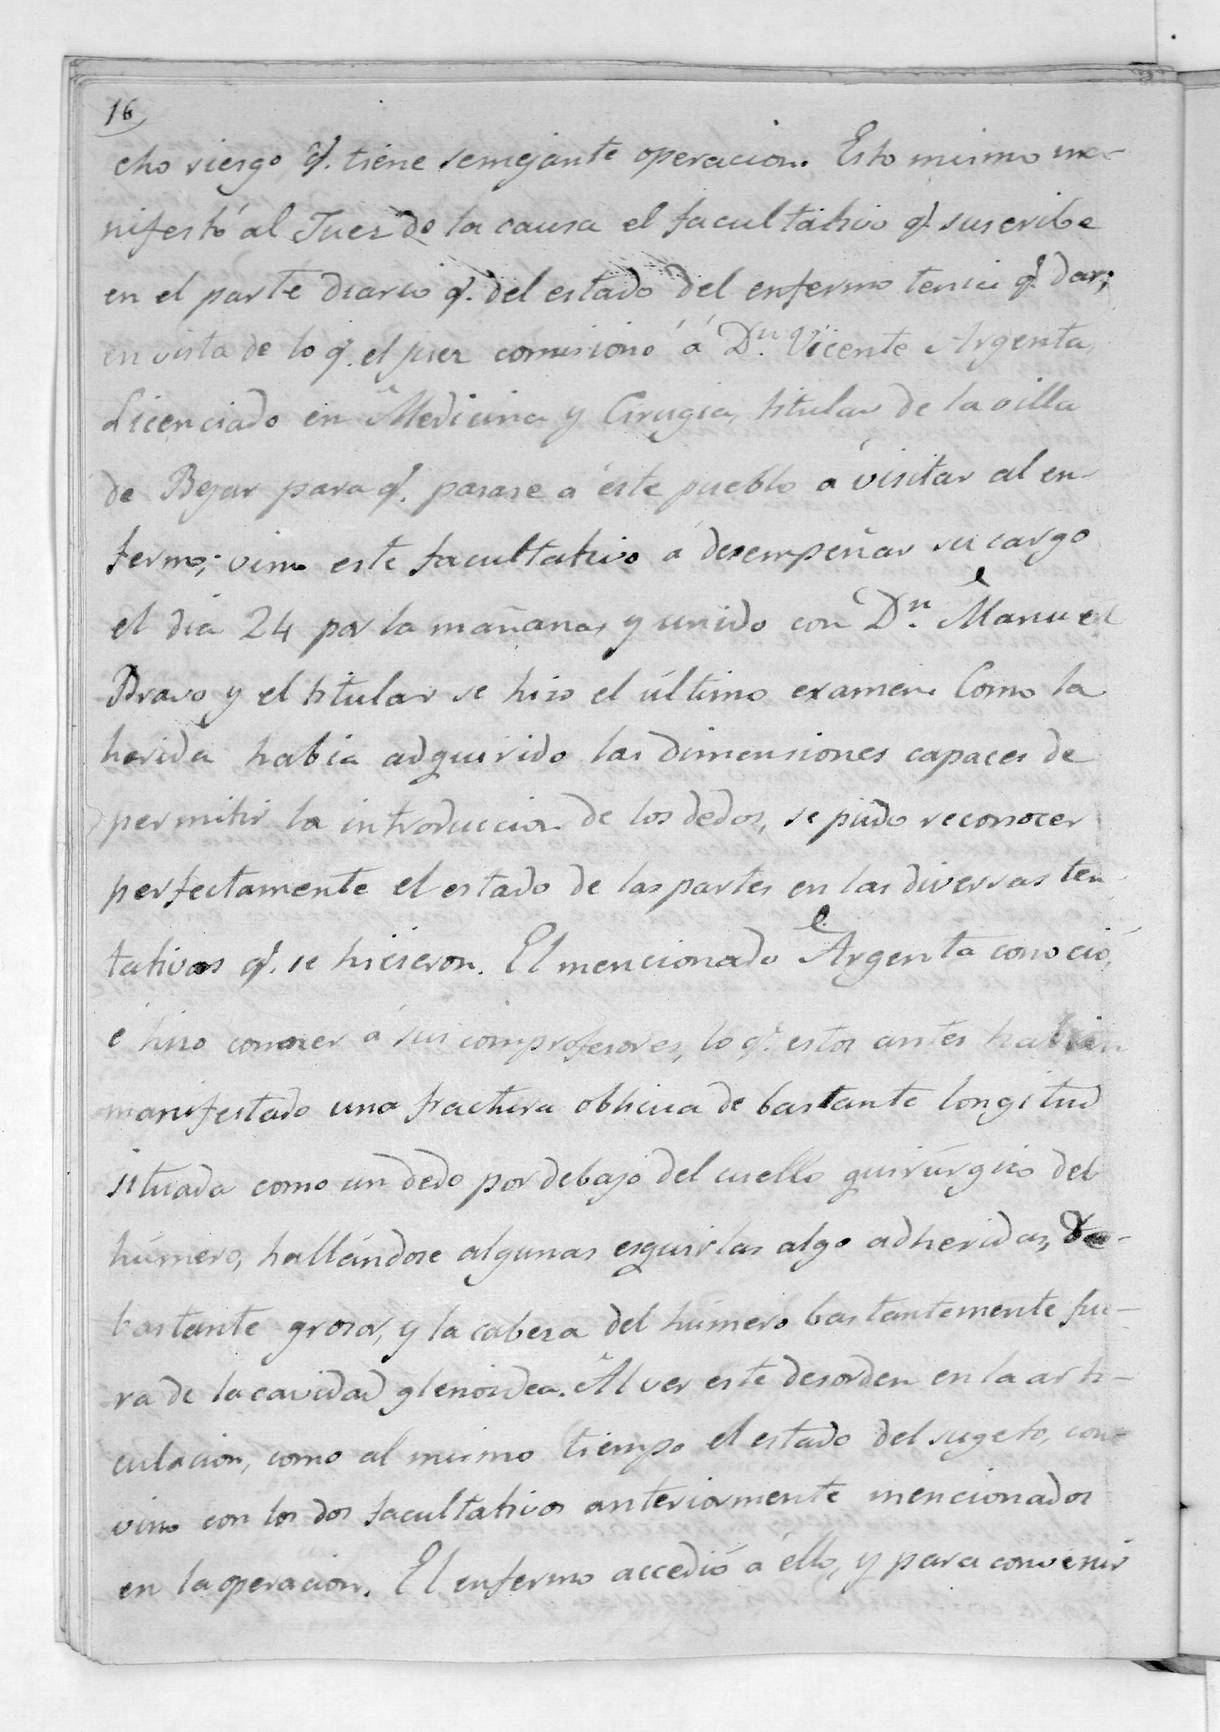 16
cho riesgo q.ᵉ tiene semejante operacion. Esto mismo ma-
nifestó al Juez de la causa el facultativo q.ᵉ suscribe
en el parte diario q.ᵉ del estado del enfermo tenia q.ᵉ dar;
en vista de lo q.ᵉ el juez comisionó á D.ⁿ Vicente Argenta,
Licenciado en Medicina y Cirugia, titular de la villa
de Bejar para q.ᵉ pasase á éste pueblo á visitar al en-
fermo; vino este facultativo á desempeñar su cargo
el dia 24 por la mañana, y unido con D.ⁿ Manuel
Bravo y el titular se hizo el último examen. Como la
herida habia adquirido las dimensiones capaces de
permitir la introduccion de los dedos, se pudo reconocer
perfectamente el estado de las partes en las diversas ten
tativas q.ᵉ se hicieron. El mencionado Argenta conoció,
é hizo conocer á sus comprofesores, lo q.ᵉ estos antes habian
manifestado una fractura oblicua de bastante longitud
situada como un dedo por debajo del cuello quirúrgico del
húmero, hallándose algunas esquirlas algo adheridas, de
bastante grosor, y la cabeza del húmero bastantemente fue-
ra de la cavidad glenoidea. Al ver este desorden en la arti-
culacion, como al mismo tiempo el estado del sugeto, con-
vino con los dos facultativos anteriormente mencionados
en la operacion. El enfermo accedió á ello, y para convenir